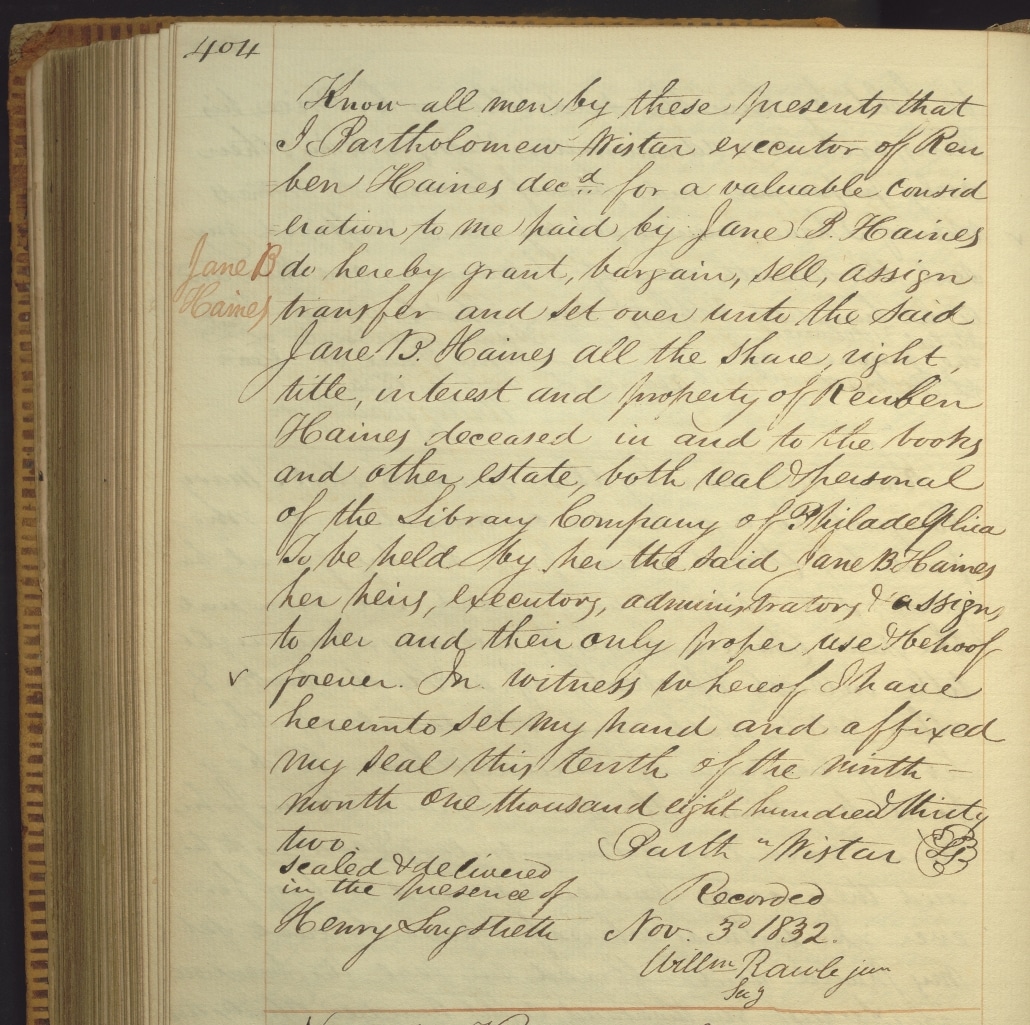 404
Know all men by these presents that
I Bartholomew Wistar executor of Reu
ben Haines decd for a valuable consid
eration to me paid by Jane B. Haines
Jane B
Haines
do hereby grant, bargain, sell, assign
transfer and set over unto the said
Jane B. Haines all the share, right,
title, interest and property of Reuben
Haines deceased in and to the books
and other estate, both real & personal
of the Library Company of Philadelphia
To be held by her the said Jane B Haines
her heirs, executors, administrators & assigns
to her and their only proper use & behoof
✓ forever. In witness whereof I have
hereunto set my hand and affixed
my seal this tenth of the ninth –
month one thousand eight hundred & thirty
two.
Barthw Wistar LS
sealed & delivered
in the presence of
Henry Longstreth
Recorded
Nov. 3d 1832.
Willm Rawle jun
Secy